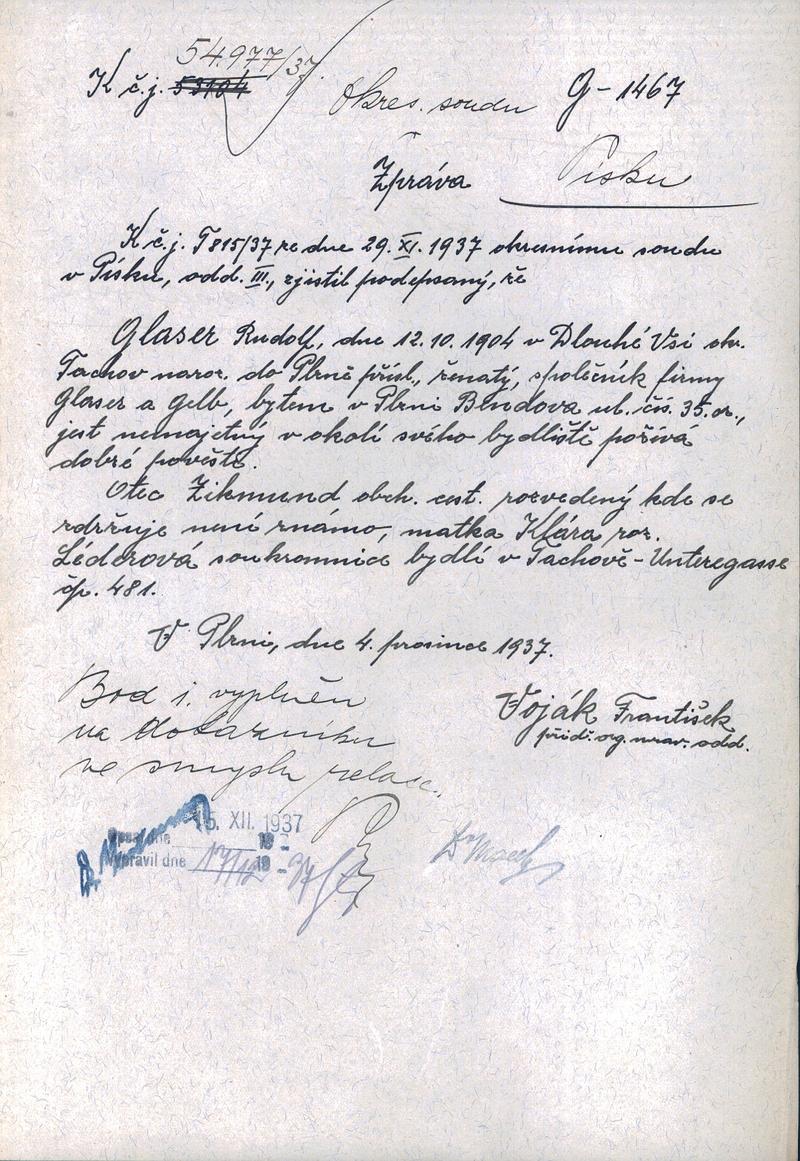 54.977/37.
K č.j. 53104
Okres. soudu
G-1467
Zpráva
Písku
K č.j. T 815/37 ze dne 29. XI. 1937 okresnímu soudu
v Písku, odd. III., zjistil podepsaný, že
Glaser Rudolf, dne 12.10.1904 v Dlouhé Vsi okr.
Tachov naroz. do Plzně přísl., ženatý, společník firmy
Glaser a Gelb, bytem v Plzni Bendova ul. čís. 35.
jest nemajetný v okolí svého bydliště požívá
dobré pověsti.
Otec Zikmund obch. cest. rozvedený kde se
zdržuje není známo, matka Klára roz.
Léderová soukromnice bydlí v Tachově - Unteregasse
čp. 481.
V Plzni, dne 4. prosince 1937.
Bod 1. vyplněn
na dotazníku
ve smyslu relace.
Voják František
příd. org. mrav. odd.
15. XII. 1937
Opsal dne 19
Vypravil dne 17/12 19 37